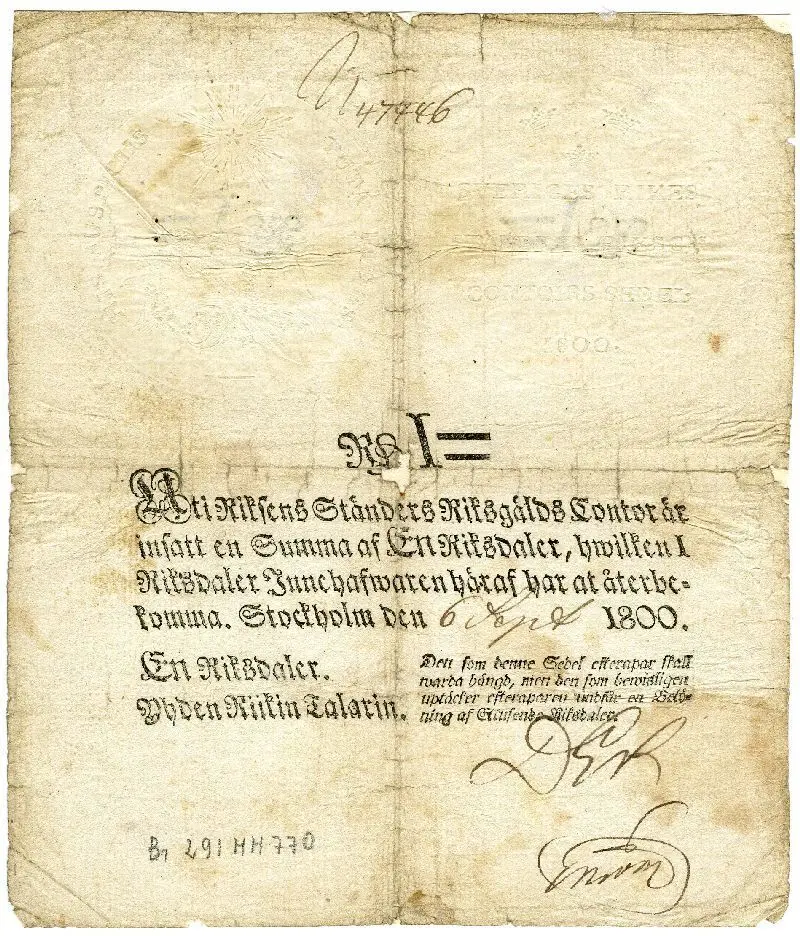 Nr 47446
SVERIGES RIKES
CONTOIRS SEDEL
1800.
RD I=
Uti Riksens Ständers Riksgälds Contor är
insatt en Summa af En Riksdaler, hwilken I
Riksdaler Innehafwaren häraf har at återbe-
komma. Stockholm den 6 Sept 1800.
En Riksdaler.
Yhden Riikin Talarin.
Den som denne Sedel efterapar skall
warda hängd, men den som bewisligen
uptäcker efteraparen undfår en Belö-
ning af Riksdaler.
B, 291 HH 770